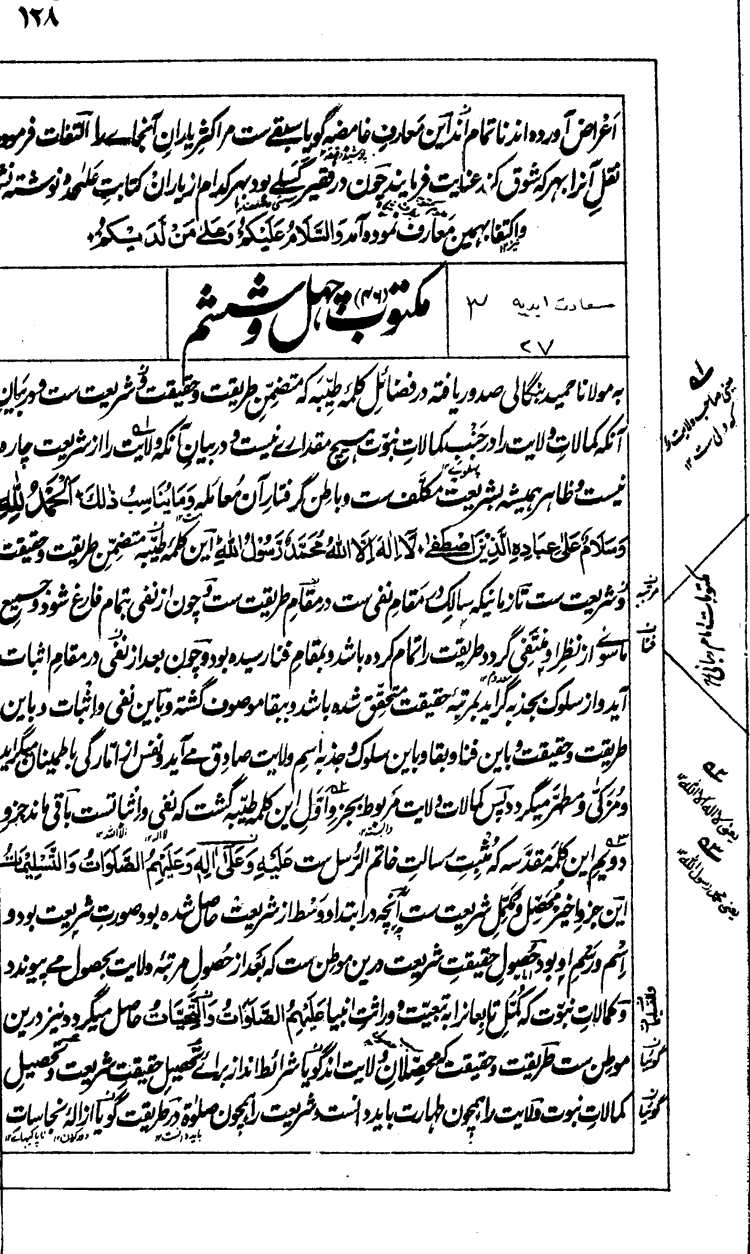 ۱۲۸
اغراض آورده اند ناتمام اند این معارف غامضه گویا سبقے ست مر اکثر یاران آنجائے را التفات فرموده
نقل آنرا بهر که شوق کند عنایت فرمایند چون در فقیر کسلے بود بهر کدام از یاران کتابت علیحده نوشته نشد
واکتفا بهمین معارف نموده آمد والسلام علیکم وعلی من لدیکم
مکتوب (۴۶) چهل و ششم
سعادت ابدیه ۳
۲۷
به مولانا حمید بنگالی صدور یافته در فضائل کلمهٔ طیبه که متضمن طریقت و حقیقت و شریعت ست و در بیان
آنکه کمالات ولایت را در جنب کمالات نبوت هیچ مقدارے نیست و در بیان آنکه ولایت را از شریعت چاره
نیست و ظاهر همیشه بشریعت مکلف ست و باطن گرفتار آن معامله وما یناسب ذلك الحمد لله
وسلام علی عباده الذین اصطفی لا اله الا الله محمد رسول الله این کلمهٔ طیبه متضمن طریقت و حقیقت
و شریعت ست تا زمانیکه سالک در مقام نفی ست در مقام طریقت ست و چون از نفی بتمام فارغ شود و جمیع
ماسوی از نظر او منتفی گردد طریقت را تمام کرده باشد و بمقام فنا رسیده بود و چون بعد از نفی در مقام اثبات
آید و از سلوک بجذبه گراید بمرتبهٔ حقیقت متحقق شده باشد و ببقا موصوف گشته و باین نفی و اثبات و باین
طریقت و حقیقت و باین فنا و بقا و باین سلوک و جذبه اسم ولایت صادق مے آید و نفس از امارگی باطمینان میگراید
و مزکی و مطهر میگردد پس کمالات ولایت مربوط بجزو اول این کلمهٔ طیبه گشت که نفی و اثباتست باقی ماند جزو
دویم این کلمهٔ مقدسه که مثبت رسالت خاتم الرسل ست علیه وعلی اله وعلیهم الصلوات والتسلیمات
این جزو اخیر محصل و مکمل شریعت ست آنچه در ابتدا و وسط از شریعت حاصل شده بود صورت شریعت بود و
اسم و رسم او بود حصول حقیقت شریعت درین موطن ست که بعد از حصول مرتبهٔ ولایت بحصول مے پیوندد
و کمالات نبوت که کمل تابعانرا به تبعیت و وراثت انبیا علیهم الصلوات والتحیات حاصل میگردد نیز درین
موطن ست طریقت و حقیقت که محصلان ولایت اند گویا شرائط اند از برائے تحصیل حقیقت شریعت و تحصیل
کمالات نبوت ولایت را همچون طهارت باید دانست و شریعت را همچون صلوة در طریقت گویا ازالهٔ نجاسات
یعنی صاحب ولایت را
که ولی ست
مکتوبات امام ربانی
یعنی لا اله الا الله
یعنی محمد رسول الله